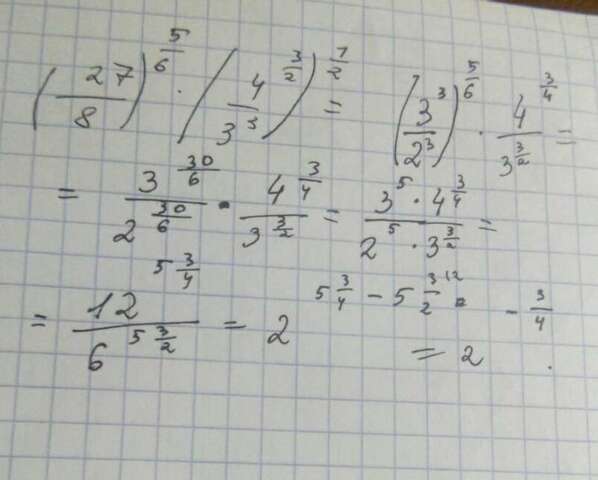 (27/8)^(5/6) · (4^(3/2)/3^3)^(1/2) = (3^3/2^3)^(5/6) · 4^(3/4)/3^(3/2) =
= 3^(30/6)/2^(30/6) · 4^(3/4)/3^(3/2) = (3^5 · 4^(3/4))/(2^5 · 3^(3/2)) =
= 12^(5 3/4)/6^(5 3/2) = 2^(5 3/4 - 5 3/2) - 3/4
= 2